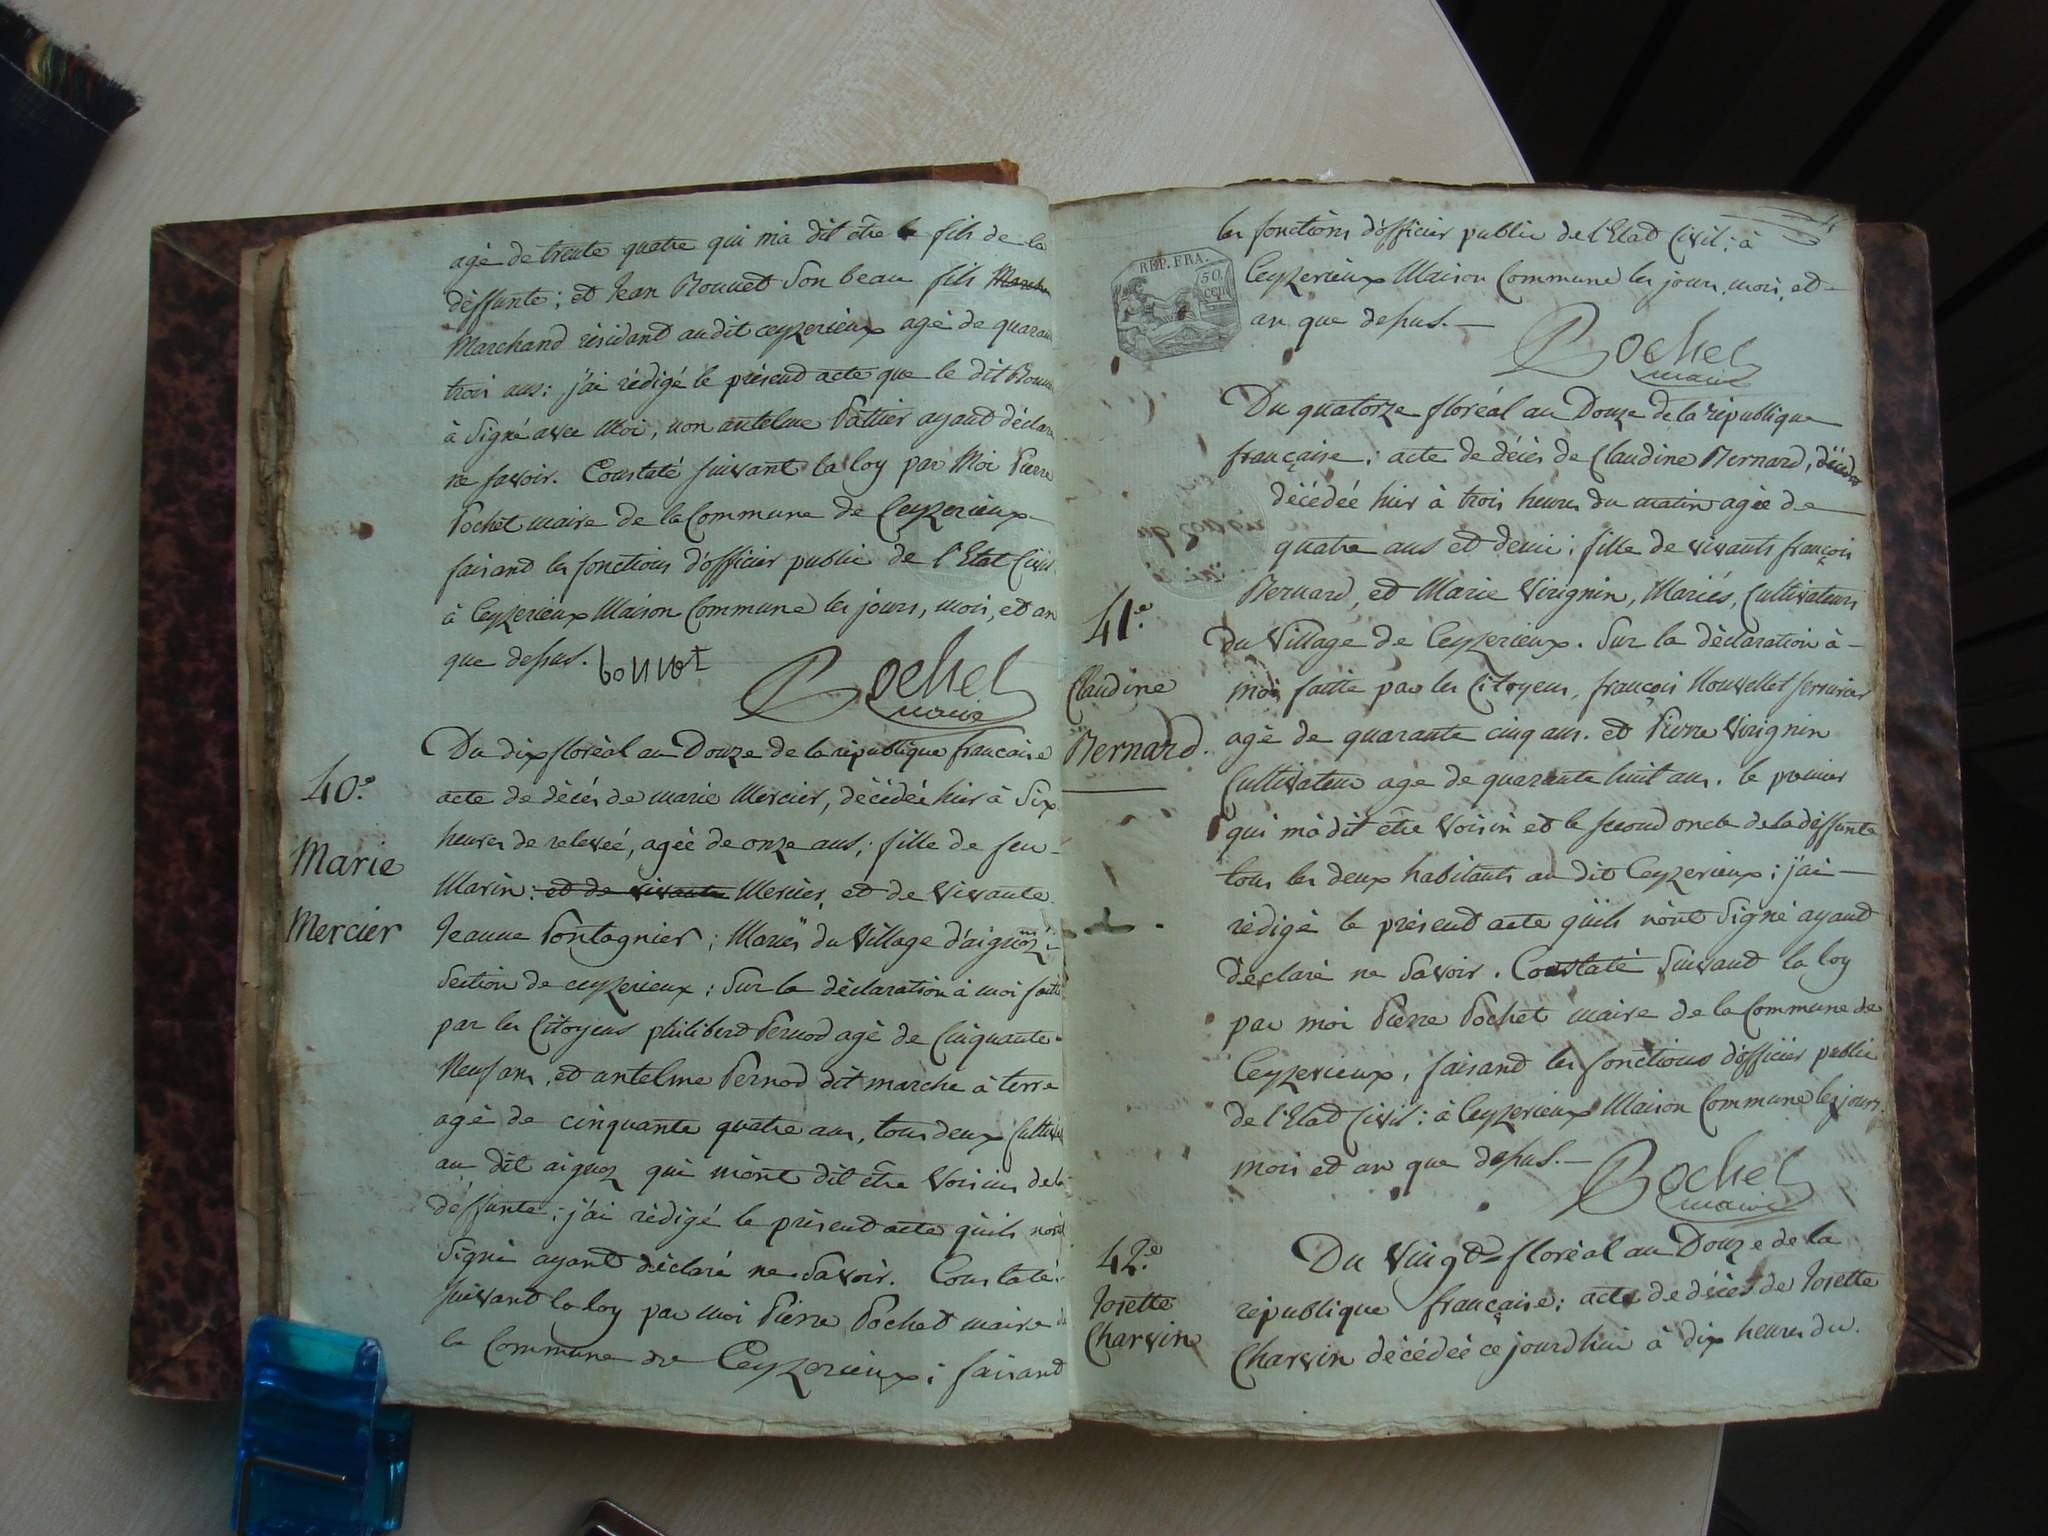 agé de trente quatre qui ma dit être le fils de la
déffunte; et Jean Bonnet Son beau fils Marcha
Marchand résidant audit ceyzerieux agé de quaran
trois ans: j'ai rédigé le présent acte que le dit Bonn
à Signé avec Moi, non antelme Pattier ayant déclaré
ne savoir. Constaté suivant la loy par Moi Pierre
Pochet maire de la Commune de Ceyzerieux
faisant les fonctions d'officier public de l'Etat Civil
à Ceyzerieux Maison Commune les jours, mois, et an
que dessus. bonnot
Pochet
maire
Du dix floréal an Douze de la république francaise
40.e
acte de décés de marie Mercier, décédée hier à Six
heures de relevée, agée de onze ans; fille de feu
Marie
Marin: et de vivante Mercier, et de Vivante
Mercier
Jeanne Pontagnier; Mariés du Village d'aignoz
Section de ceyzerieux; Sur la déclaration à moi faite
par les Citoyens philibert Pernod agé de Cinquante
Neuf ans, et antelme Pernod dit marche à terre
agé de cinquante quatre ans, tous deux Cultiva
au dit aignoz qui m'ont dit être Voisins de la
déffunte; j'ai rédigé le présent acte qu'ils n'ont
Signé ayant déclaré ne Savoir. Constaté
suivant la loy par moi Pierre Pochet maire de
la Commune de Ceyzerieux; faisant
les fonctions d'officier public de l'Etat Civil; à
REP. FRA.
50.
cen
Ceyzerieux Maison Commune les jours, mois, et
an que dessus.
Pochet
maire
Du quatorze floréal an Douze de la république
française; acte de décés de Claudine Bernard, décédée
décédée hier à trois heures du matin agée de
quatre ans et demi; fille de vivants françois
41.e
Bernard, et Marie Virignin, Mariés, Cultivateurs
du Village de Ceyzerieux. Sur la déclaration à
Claudine
moi faitte par les Citoyens, françois Nouvellet serrurier
Bernard.
agé de quarante cinq ans. et Pierre Virignin
Cultivateur agé de quarante huit ans. le premier
qui m'a dit être Voisin et le second oncle de la déffunte
tous les deux habitants au dit Ceyzerieux; j'ai
rédigé le présent acte qu'ils n'ont Signé ayant
déclaré ne Savoir. Constaté Suivant la loy
par moi Pierre Pochet maire de la Commune de
Ceyzerieux, faisant les fonctions d'officier public
de l'Etat Civil: à Ceyzerieux Maison Commune les jours,
mois et an que dessus.
Pochet
maire
42.e
Du Vingt floréal an Douze de la
Josette
république française; acte de décés de Josette
Charvin
Charvin décédée ce jourd'hui à dix heures du